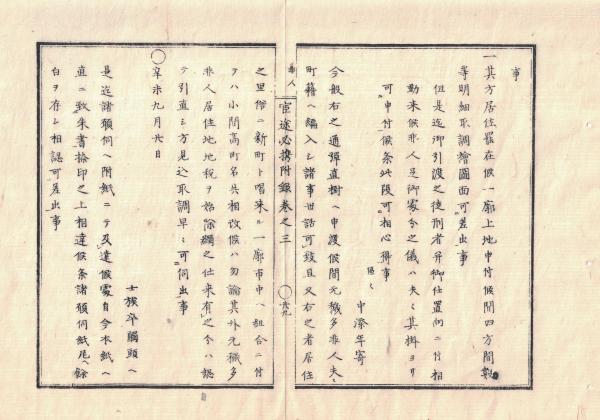 事
一其方居住罷在候一廓上地申付候間四方間數
等明細取調繪圖面可差出事
但是迄御引渡之徒刑者并御仕置向ニ付相
勤來候非人足御家今之儀ハ夫々其掛ヨリ
可申付候条此段可相心得事
區々
中添年寄
今般右之通彈直樹ヘ申渡候間元穢多非人夫々
町籍ヘ編入シ諸事世話可致且又右之者居住
非人
官途必携附録巻之三
之里俗ニ新町ト唱来ル一廓市中ヘ組合ニ付
テハ小間高町名共相改候ハ勿論其外元穢多
非人居住地地税ヲ始除綱之仕来有之今ハ認
テ引直シ方見込取調早々可伺出事
〇辛未九月六日
士族卒觸頭ヘ
是迄諸願伺ヘ附紙ニテ及達候處自今本紙ヘ
直ニ致朱書捺印之上相達候条諸願伺紙尾ヘ餘
白ヲ存シ相認可差出事